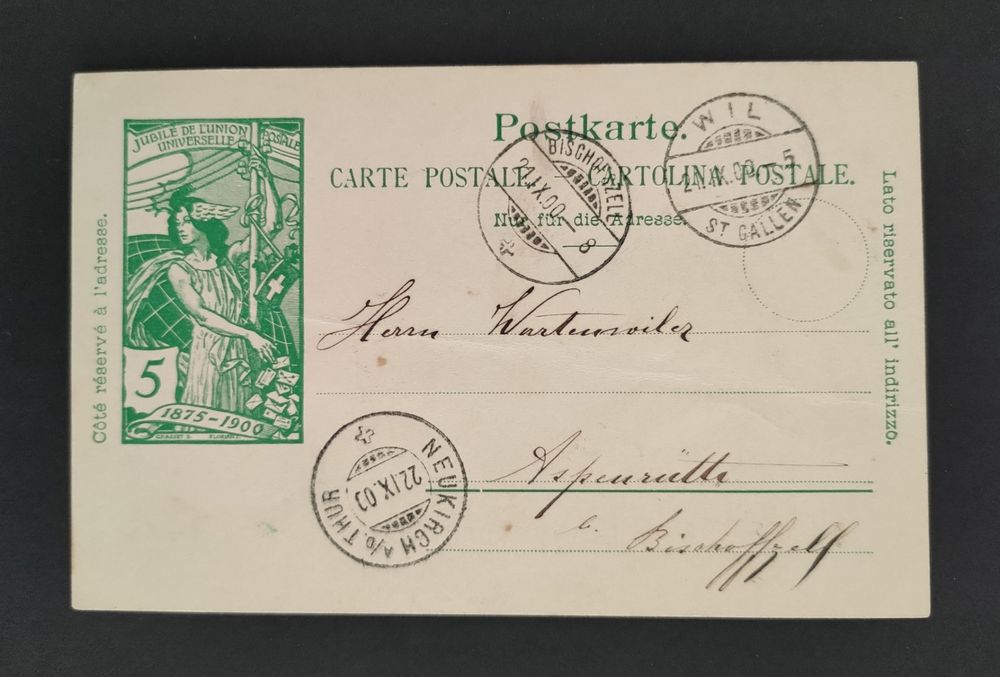 JUBILÉ DE L'UNION POSTALE
UNIVERSELLE
5
1875-1900
GRASSET E. FLORIAN
Côté réservé à l'adresse.
Postkarte.
CARTE POSTALE. CARTOLINA POSTALE.
Nur für die Adresse.
Lato riservato all' indirizzo.
BISCHOFSZELL
21.IX.00.-8
WIL
21.IX.00.-5
ST GALLEN
Herrn Wartenwiler
Aspenrütte
b. Bischoffzell
NEUKIRCH A/D. THUR
22.IX.00